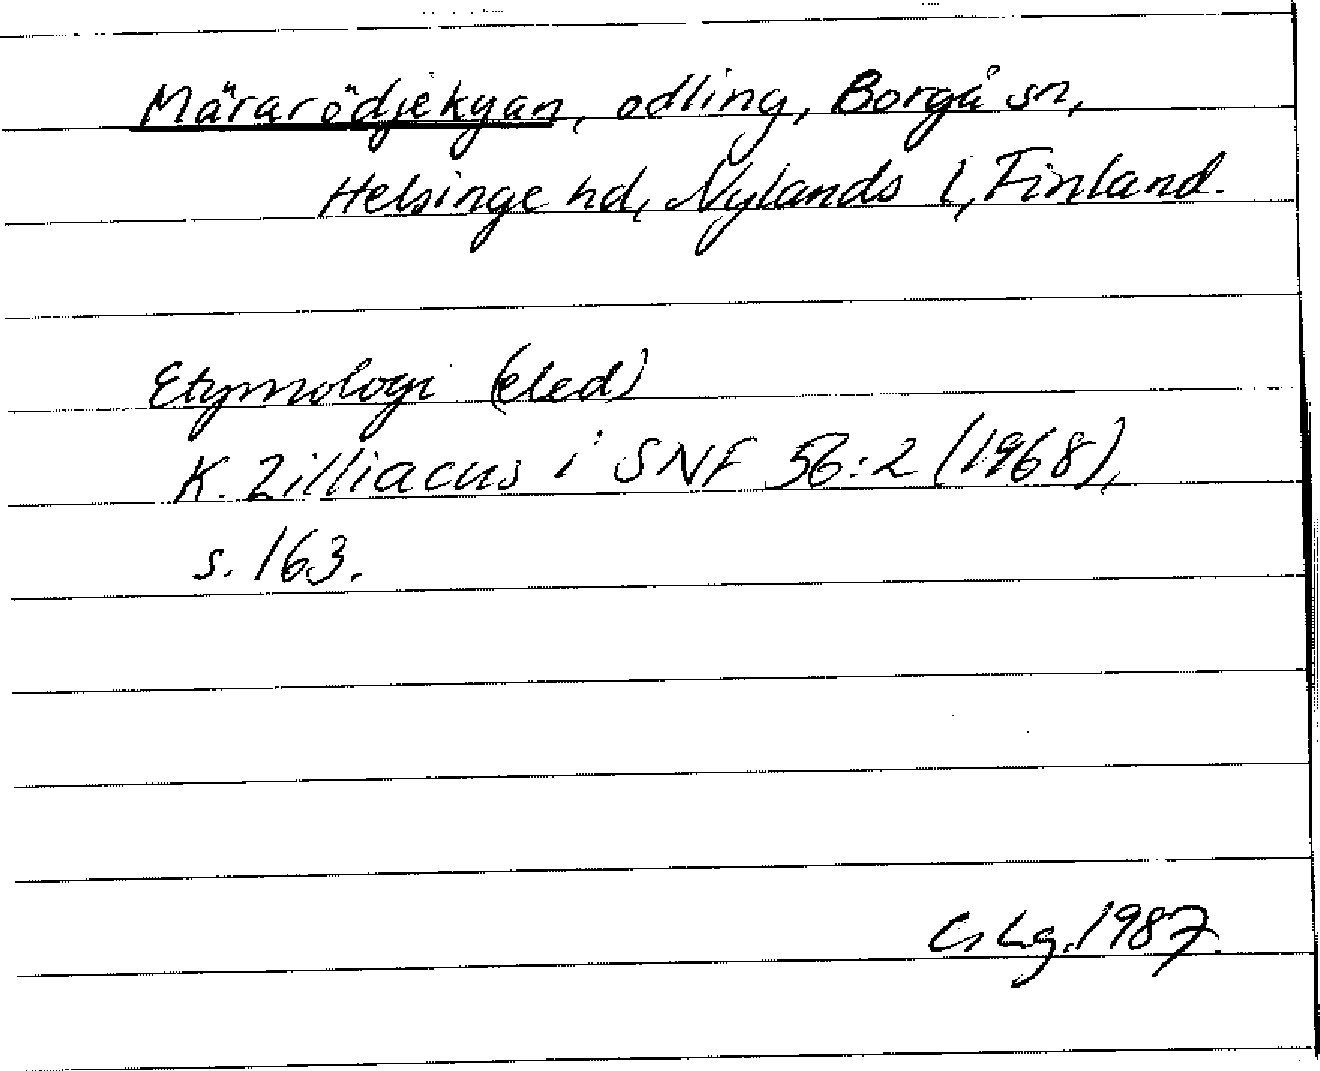 Märarödjekyan, odling, Borgå sn,
Helsinge hd, Nylands l, Finland.
Etymologi (eled)
K. Zilliacus i SNF 56:2 (1968),
s. 163.
1987.